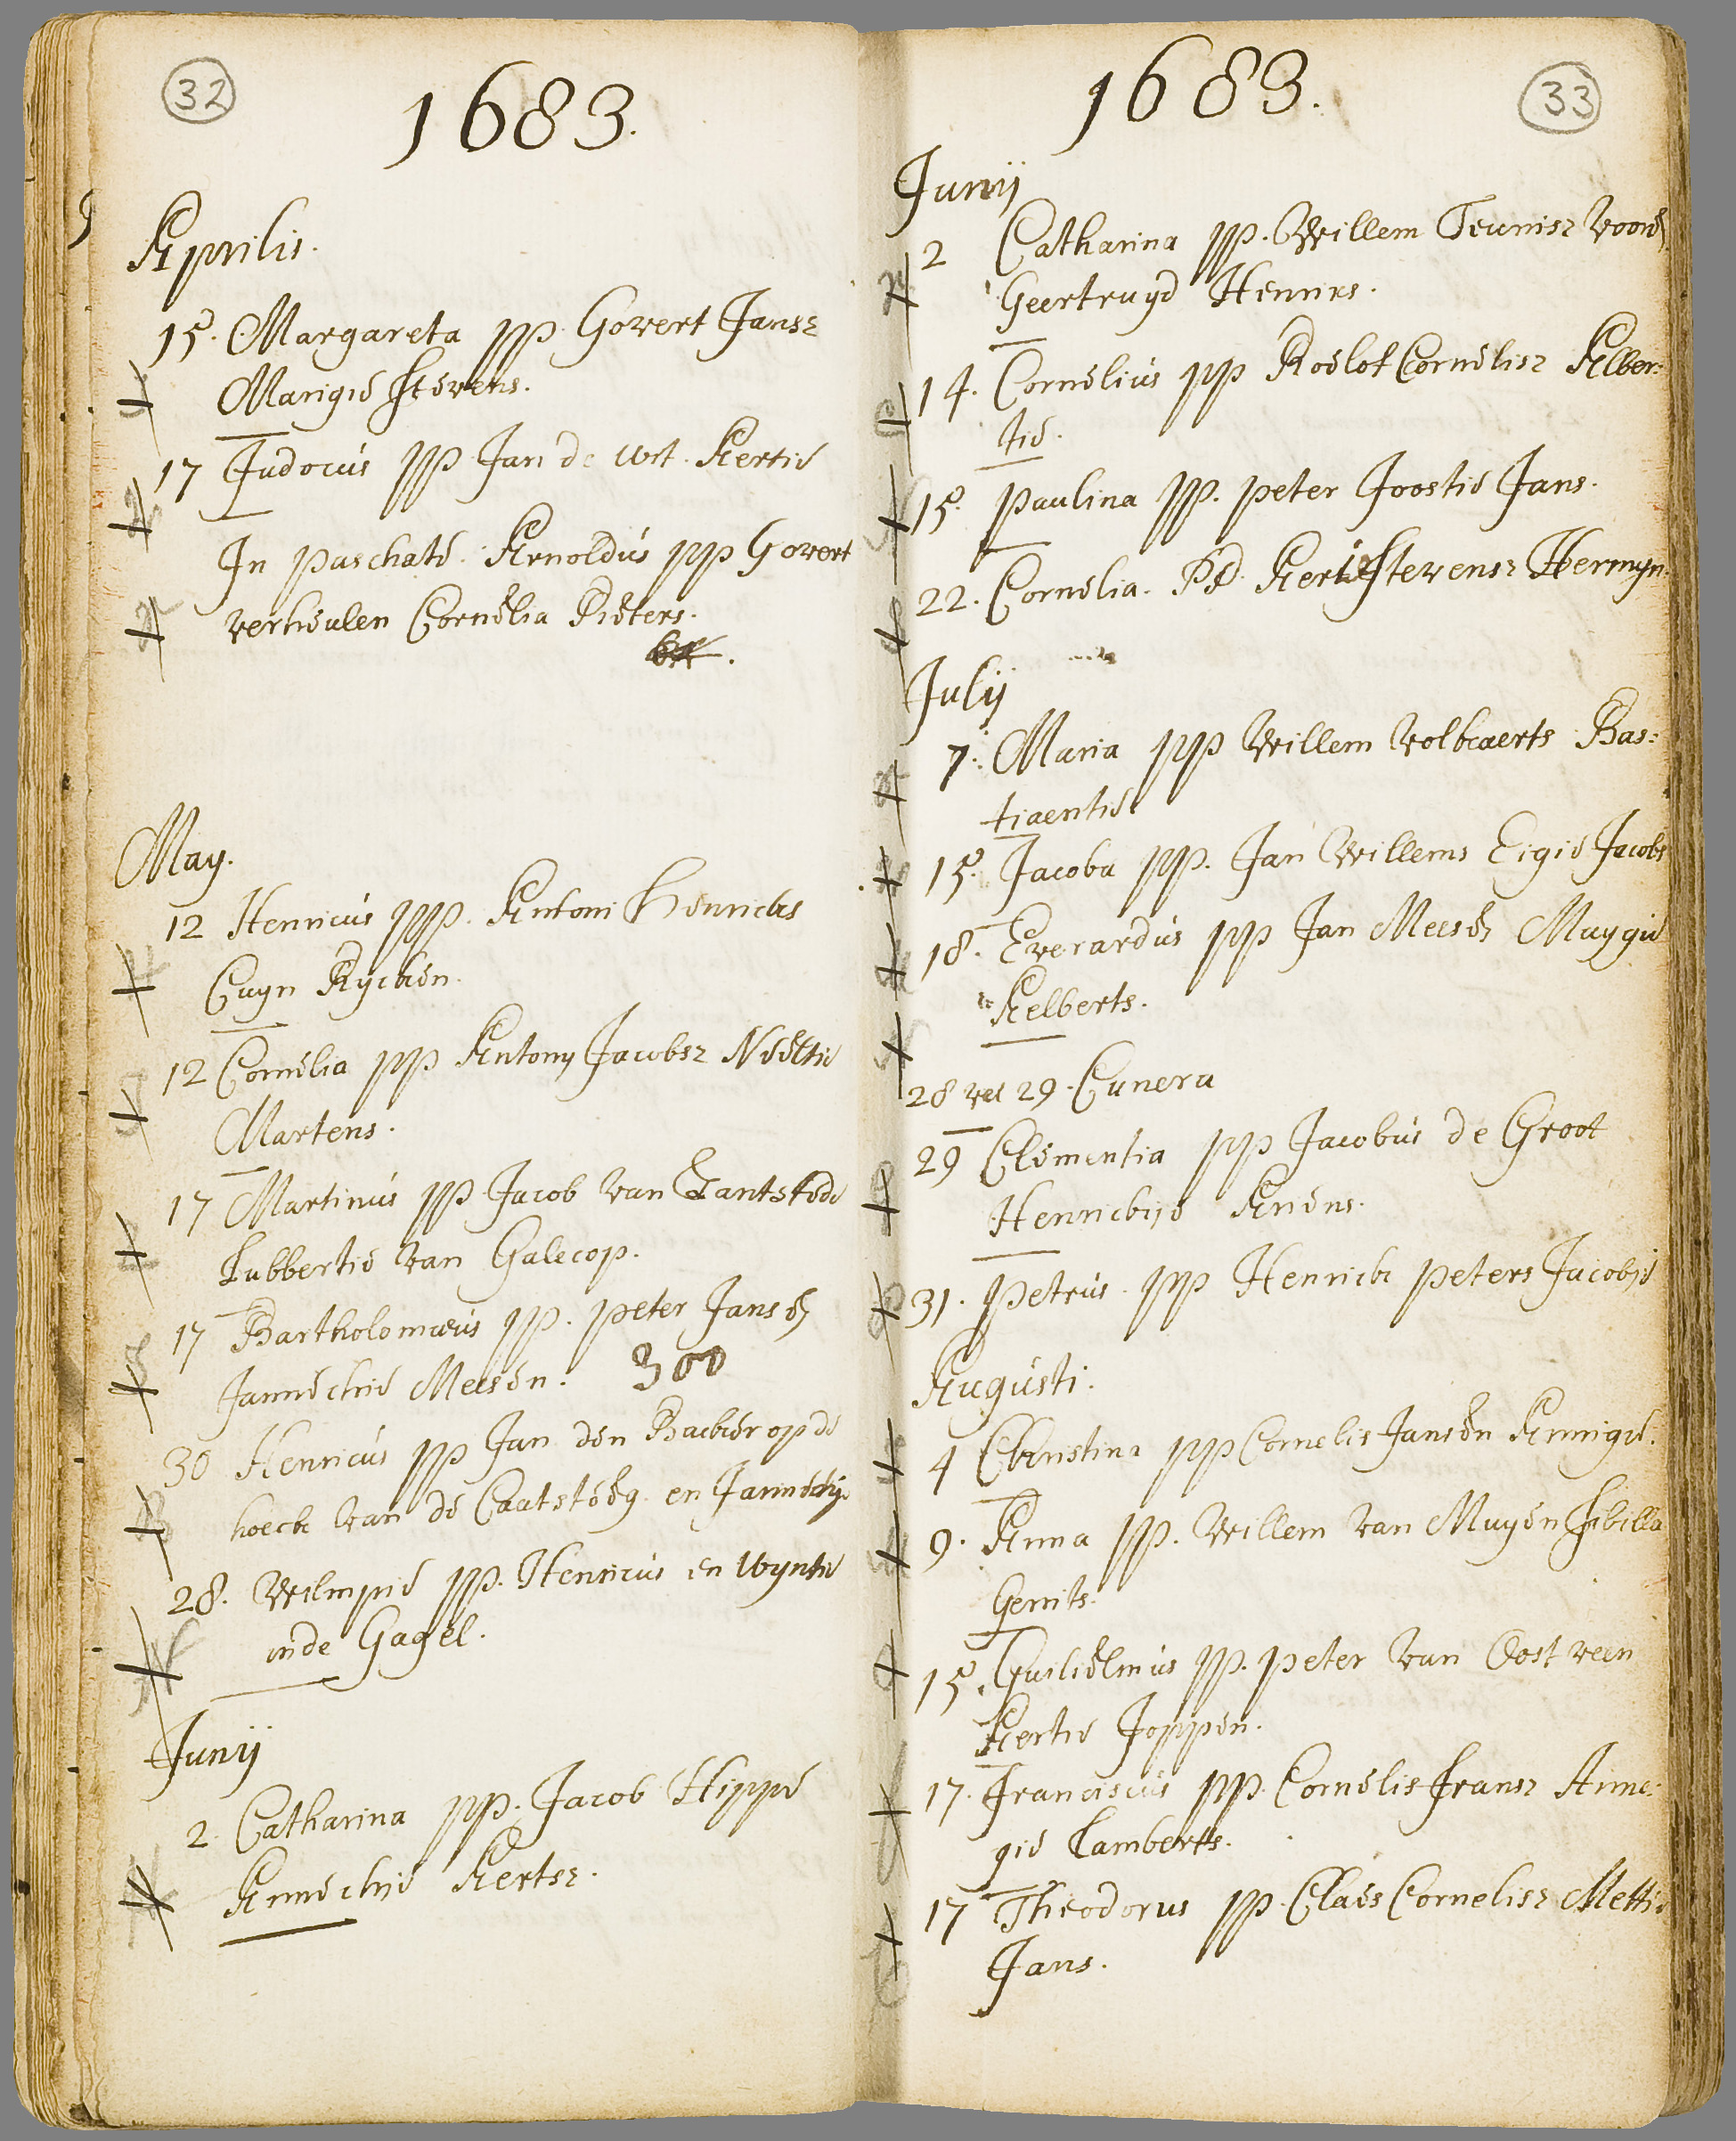 32
1683.
Aprilis.
15. Margareta pp. Govert Jansz
Marigie Stevens.
17 Judocus pp Jan de wit. Aertie
In paschate. Arnoldus pp Govert
verheulen Cornelia Pieters.
May.
12 Henricus pp. Antoni Henricks
Cuyn Rycken.
12 Cornelia pp Antony Jacobsz Neeltie
Martens.
17 Martinus pp Jacob van
Lubbertie van Galecop.
17 Bartholomæus pp. peter Jansen
Jannechie Meesen. 300
30 Henricus pp Jan den Backer op de
hoeck van de Caatsteeg. en Jannechie
28. Wilmpie pp. Henricus en Wyntie
inde Gagel.
Junij
2. Catharina pp. Jacob
Annechie Aertsz.
33
1683.
Junij
2 Catharina pp. Willem Teunisz
Geertruyd Henrics.
14. Cornelius pp Roelof Cornelisz Alber:
tie.
15. paulina pp. peter Joostie Jans.
22. Cornelia. Stevensz Hermyn:
Julij
7. Maria pp Willem Volkaerts Bas:
tiaentie
15. Jacoba pp. Jan Willems Eigie Jacobs
18. Everardus pp Jan Meesen Maygie
Aelberts.
28 vel 29. Cunera
29 Clementia pp Jacobus de Groot
Henrickije Ariens.
31. petrus. pp Henrick peters Jacobje
Augusti.
4 Christina pp Cornelis Jansen Annigie.
9. Anna pp. Willem van Muyden Sibilla
Gerrits.
15. Guilielmus pp. peter van Oostveen
Aertie Joppen.
17. Franciscus pp. Cornelis Fransz Anne:
gie Lamberts.
17 Theodorus pp. Claes Cornelisz Mettie
Jans.